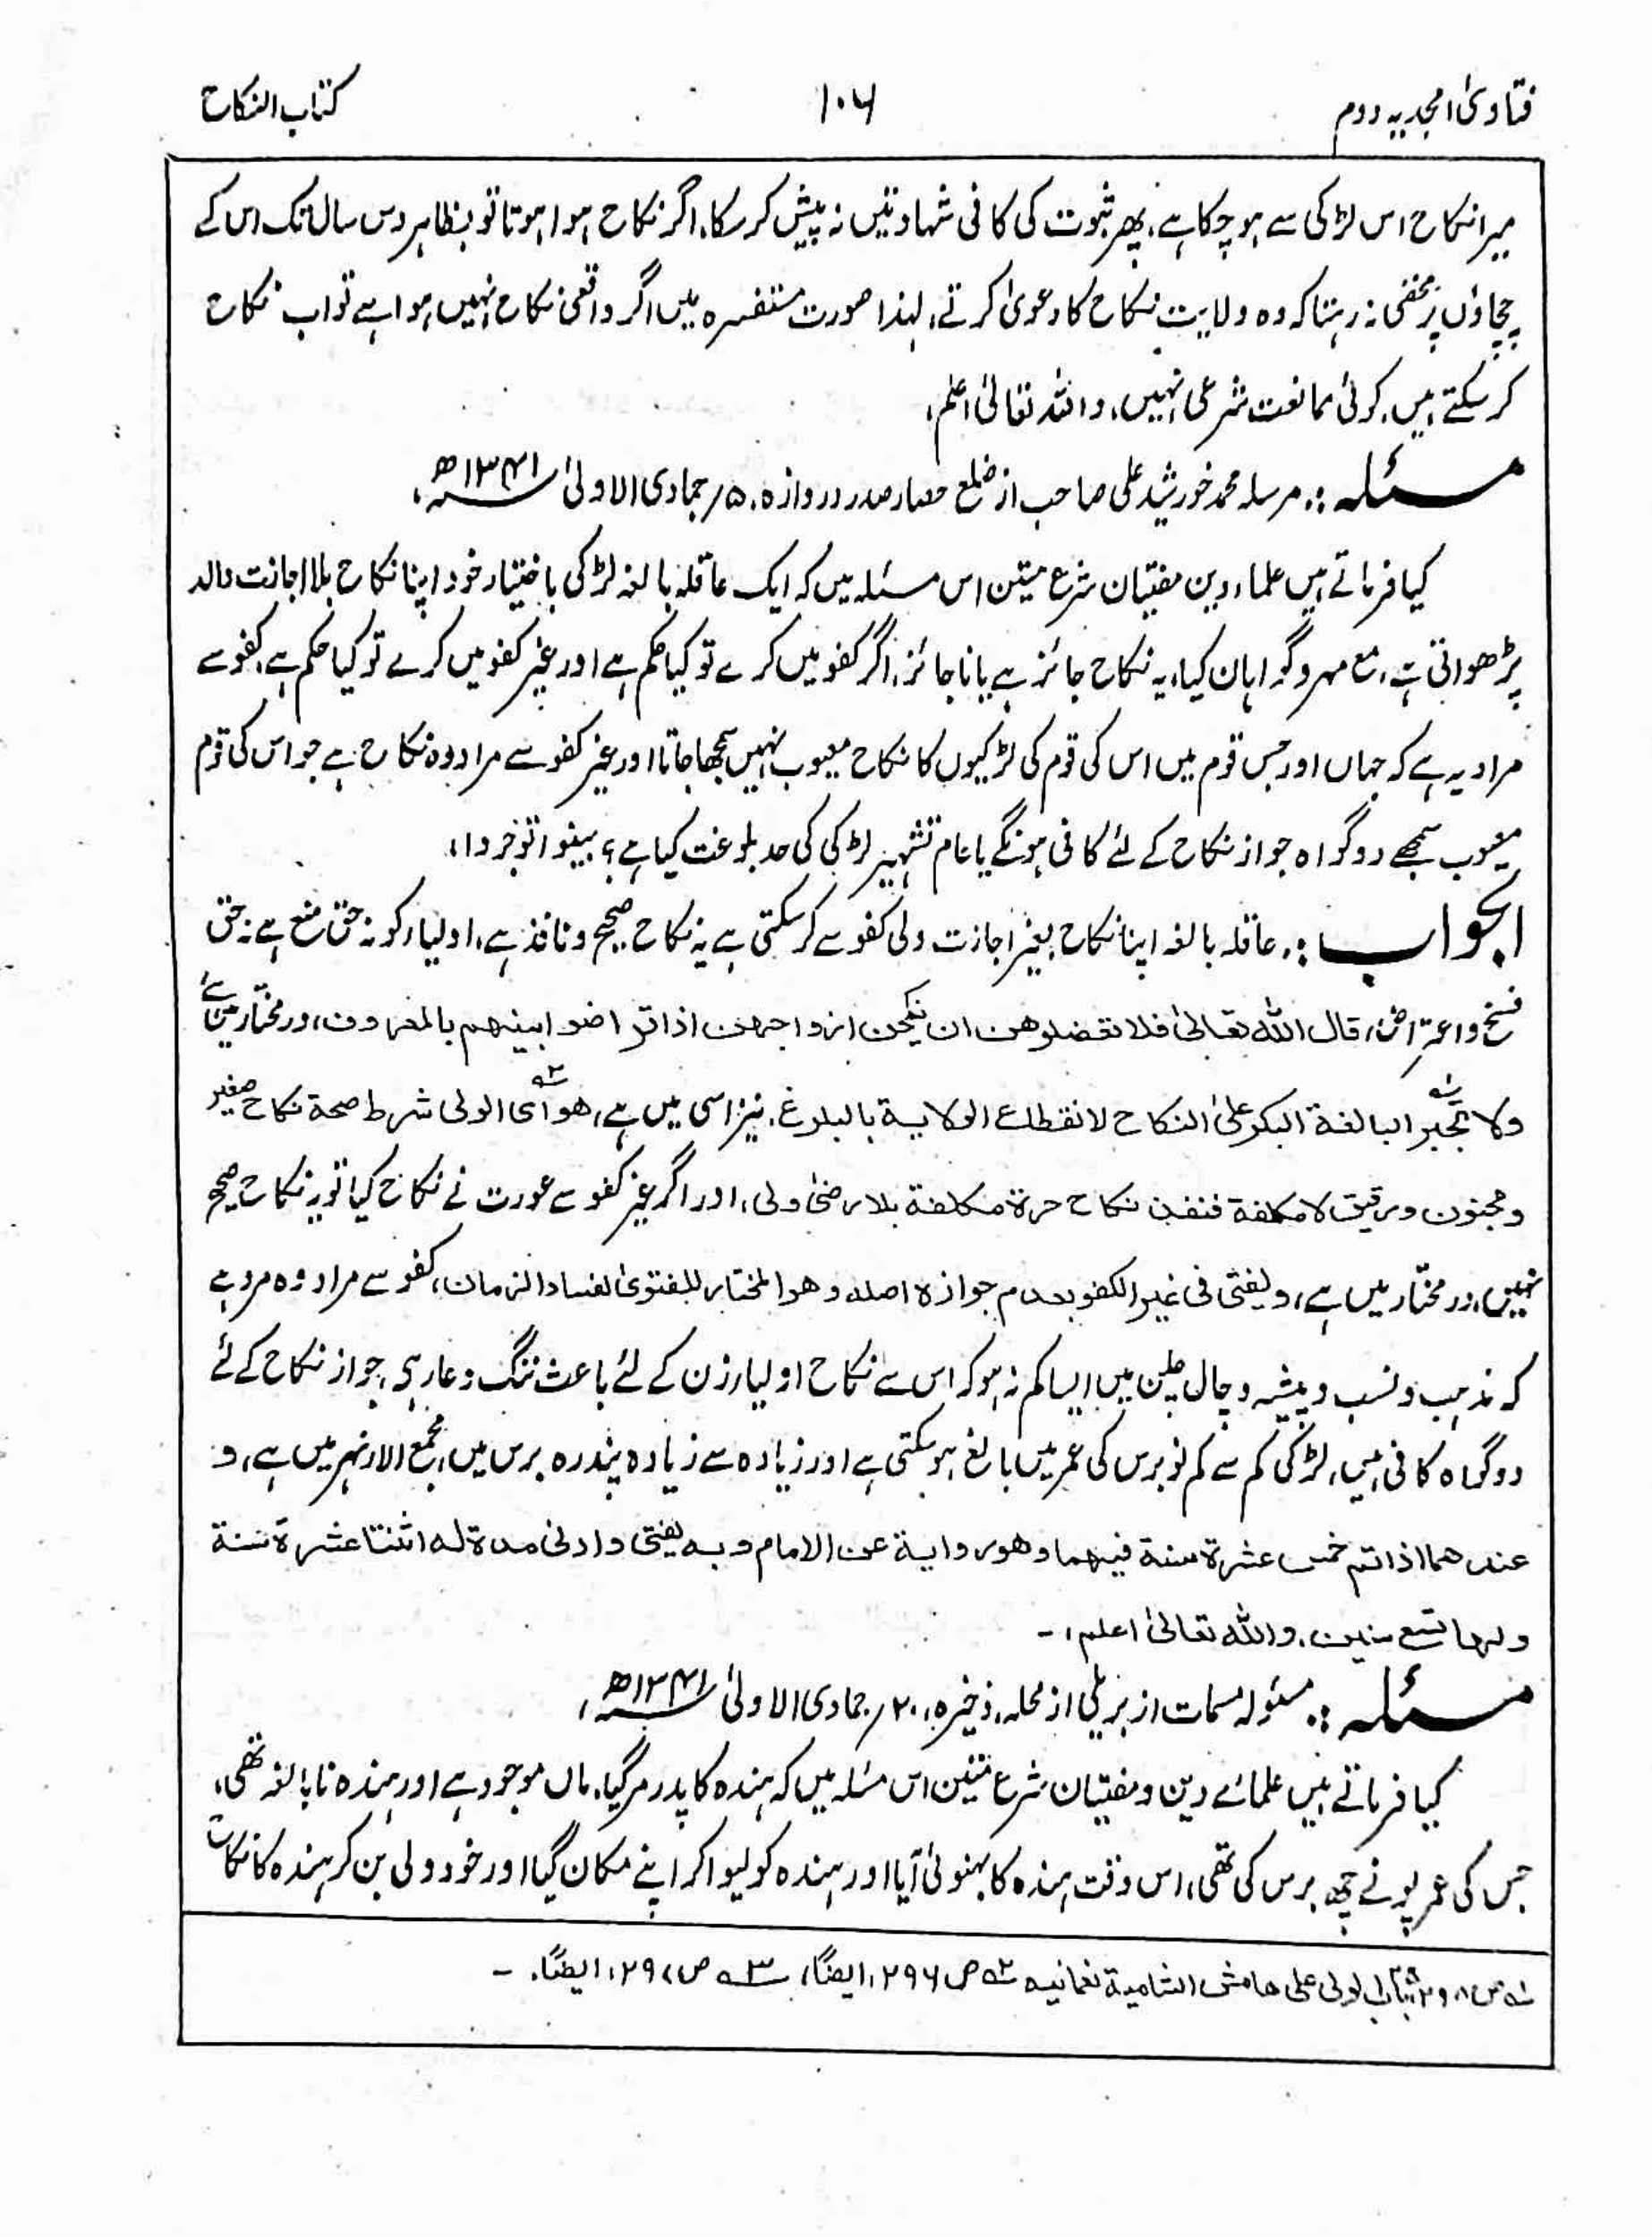 فتاویٰ امجدیہ دوم ۱۰۶ کتاب النکاح
میرا نکاح اس لڑکی سے ہو چکا ہے، پھر ثبوت کی کافی شہادتیں نہ پیش کر سکا، اگر نکاح ہوا ہوتا تو بظاہر دس سال تک اس کے
چچاؤں پر مخفی نہ رہتا کہ وہ ولایت نکاح کا دعویٰ کرتے، لہٰذا صورت مستفسرہ میں اگر واقعی نکاح نہیں ہوا ہے تو اب نکاح
کر سکتے ہیں، کوئی ممانعت شرعی نہیں، واللہ تعالیٰ اعلم،
مسئلہ :۔ مرسلہ محمد خورشید علی صاحب از ضلع حصار صدر دروازہ، ۵/جمادی الاولیٰ ۱۳۴۱ھ،
کیا فرماتے ہیں علماء دین مفتیان شرع متین اس مسئلہ میں کہ ایک عاقلہ بالغہ لڑکی باختیار خود اپنا نکاح بلا اجازت والد
پڑھواتی ہے، مع مہر و گواہان کیا، یہ نکاح جائز ہے یا ناجائز، اگر کفو میں کرے تو کیا حکم ہے اور غیر کفو میں کرے تو کیا حکم ہے، کفو سے
مراد یہ ہے کہ جہاں اور جس قوم میں اس کی قوم کی لڑکیوں کا نکاح معیوب نہیں سمجھا جاتا اور غیر کفو سے مراد وہ نکاح ہے جو اس کی قوم
معیوب سمجھے دو گواہ جواز نکاح کے لئے کافی ہونگے یا عام تشہیر لڑکی کی حد بلوغت کیا ہے؟ بینوا توجروا،
الجواب :۔ عاقلہ بالغہ اپنا نکاح بغیر اجازت ولی کفو سے کر سکتی ہے یہ نکاح صحیح و نافذ ہے، اولیاء کو نہ حق منع ہے نہ حق
فسخ و اعتراض، قال اللہ تعالیٰ فلا تعضلوھن ان ینکحن ازواجھن اذا تراضوا بینھم بالمعروف، درمختار میں ہے
ولا تجبر البالغۃ البکر علی النکاح لانقطاع الولایۃ بالبلوغ، نیز اسی میں ہے، ھو ای الولی شرط صحۃ نکاح صغیر
ومجنون ورقیق لا مکلفۃ فنفذ نکاح حرۃ مکلفۃ بلا رضی ولی، اور اگر غیر کفو سے عورت نے نکاح کیا تو یہ نکاح صحیح
نہیں، درمختار میں ہے، ویفتی فی غیر الکفو بعدم جوازہ اصلا وھو المختار للفتویٰ لفساد الزمان، کفو سے مراد وہ مرد ہے
کہ مذہب و نسب و پیشہ و چال چلن میں ایسا کم نہ ہو کہ اس سے نکاح اولیاء زن کے لئے باعث ننگ و عار ہو، جواز نکاح کے لئے
دو گواہ کافی ہیں، لڑکی کم سے کم نو برس کی عمر میں بالغ ہو سکتی ہے اور زیادہ سے زیادہ پندرہ برس میں، مجمع الانہر میں ہے، و
عندھما اذا تم خمس عشرۃ سنۃ فیھما وھو روایۃ عن الامام وبہ یفتی وادنی مدۃ لہ اثنتا عشرۃ سنۃ
ولھا تسع سنین، واللہ تعالیٰ اعلم،۔
مسئلہ :۔ مسئولہ مسمات از بریلی از محلہ، ذخیرہ، ۲۰/جمادی الاولیٰ ۱۳۴۱ھ،
کیا فرماتے ہیں علمائے دین و مفتیان شرع متین اس مسئلہ میں کہ ہندہ کا پدر مر گیا، ماں موجود ہے اور ہندہ نابالغہ تھی،
جس کی عمر پونے چھ برس کی تھی، اس وقت ہندہ کا بہنوئی آیا اور ہندہ کو لیوا کر اپنے مکان گیا اور خود ولی بن کر ہندہ کا نکاح
باب الولی علی ھامش الشامیۃ نعمانیہ ۲ ص ۲۹۶، ایضًا، ۳ ص ۲۹۷، ایضًا،۔